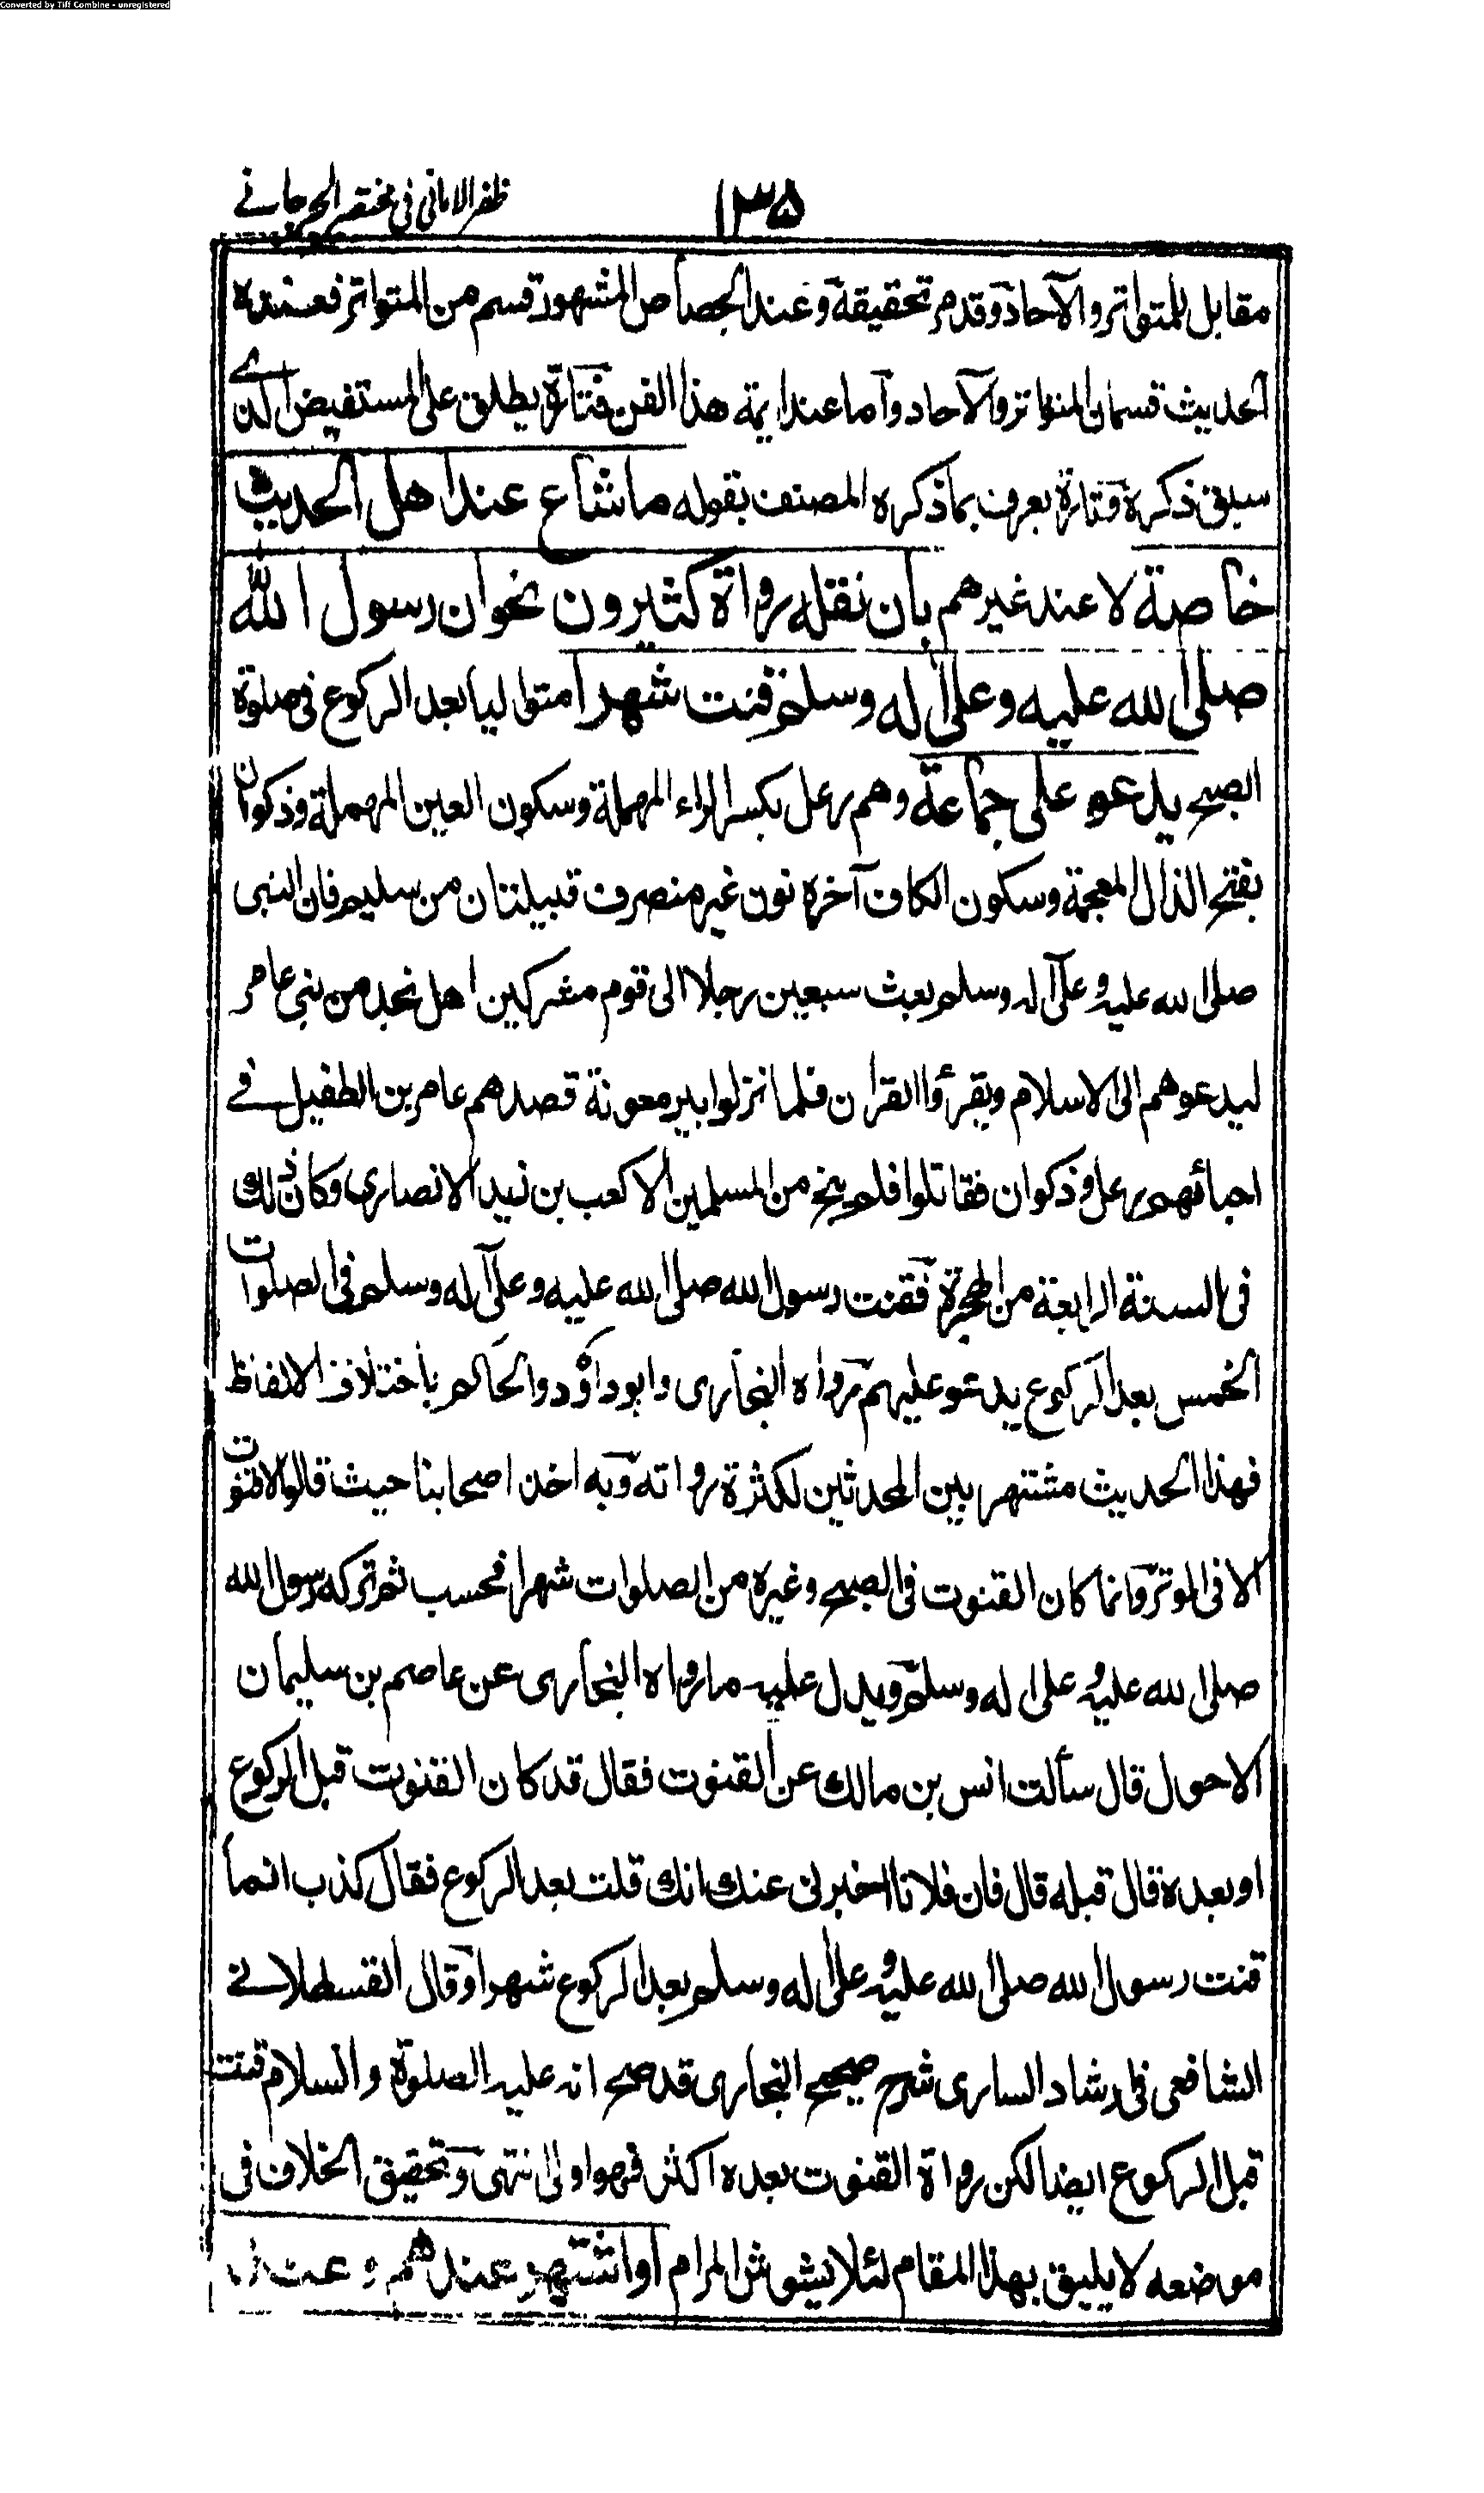 Converted by Tiff Combine - unregistered
ظفر الامانی فی مختصر الجرجانے
١٣٥
مقابل للمتواتر والآحاد وقد مر تحقيقه وعند الجصاص المشهور قسم من المتواتر فعنده
الحديث قسمان المتواتر والآحاد وأما عند ايمة هذا الفن فتارة يطلق على المستفيض الذے
سبق ذكره وتارة يعرف بما ذكره المصنف بقوله ما شاع عند اهل الحديث
خاصة لا عند غيرهم بان نقله رواة كثيرون نحو ان رسول الله
صلى الله عليه وعلى اله وسلم قنت شهرا متواليا بعد الركوع فى صلوة
الصبح يدعو على جماعة وهم رعل بكسر الراء المهملة وسكون العين المهملة وذكوان
بفتح الذال المعجمة وسكون الكاف آخره نون غير منصرف قبيلتان من سليم فان النبى
صلى الله عليه وعلى آله وسلم بعث سبعين رجلا الى قوم مشركين اهل نجد من بنى عامر
ليدعوهم الى الاسلام ويقرؤا القران فلما نزلوا بير معونة قصدهم عامر بن الطفيل فے
احبائهم رعل وذكوان فقاتلوا فلم ينج من المسلمين الا كعب بن زيد الانصارى وكان ذلك
فى السنة الرابعة من الهجرة فقنت رسول الله صلى الله عليه وعلى آله وسلم فى الصلوات
الخمس بعد الركوع يدعو عليهم رواه البخارى وابو داؤد والحاكم باختلاف الالفاظ
فهذا الحديث مشتهر بين المحدثين لكثرة رواته وبه اخذ اصحابنا حيث قالوا لا قنوت
الا فى الوتر وانما كان القنوت فى الصبح وغيره من الصلوات شهرا فحسب ثم تركه رسول الله
صلى الله عليه وعلى اله وسلم ويدل عليه ما رواه البخارى عن عاصم بن سليمان
الاحول قال سألت انس بن مالك عن القنوت فقال قد كان القنوت قبل الركوع
او بعده قال قبله قال فان فلانا اخبرنى عنك انك قلت بعد الركوع فقال كذب انما
قنت رسول الله صلى الله عليه وعلى اله وسلم بعد الركوع شهرا وقال القسطلانے
الشافعى فى ارشاد السارى شرح صحيح البخارى قد صح انه عليه الصلوة والسلام قنت
قبل الركوع ايضا لكن رواة القنوت بعده اكثر فهو اولى انتهى وتحقيق الخلاف فى
موضعه لا يليق بهذا المقام لئلا يشوش المرام او اشتهر عندهم وعند